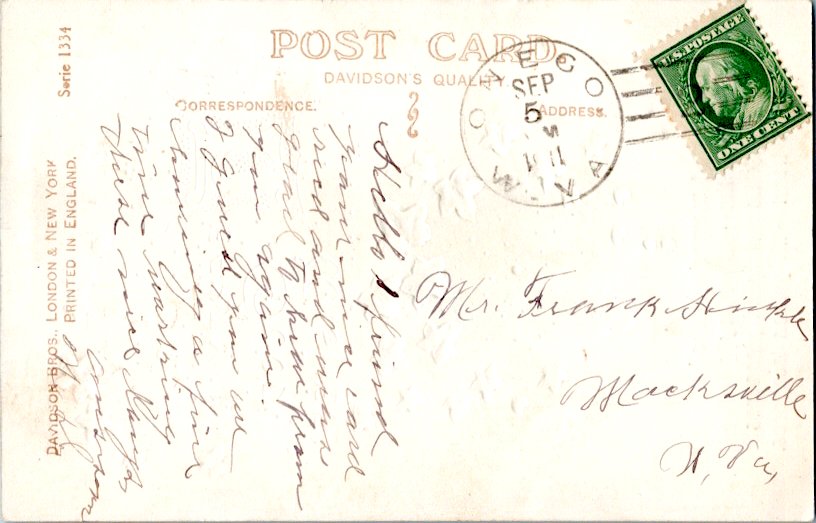 POST CARD.
DAVIDSON'S QUALITY
CORRESPONDENCE.
ADDRESS.
Serie 1334
DAVIDSON BROS., LONDON & NEW YORK
PRINTED IN ENGLAND.
ONEGO
SEP
5
W. VA
U.S. POSTAGE
ONE CENT
Hello friend
your nice card
and was
glad to hear from
you again.
I guess you are
having a fine
time
these nice
Mr. Frank
Macksville
W, Va,